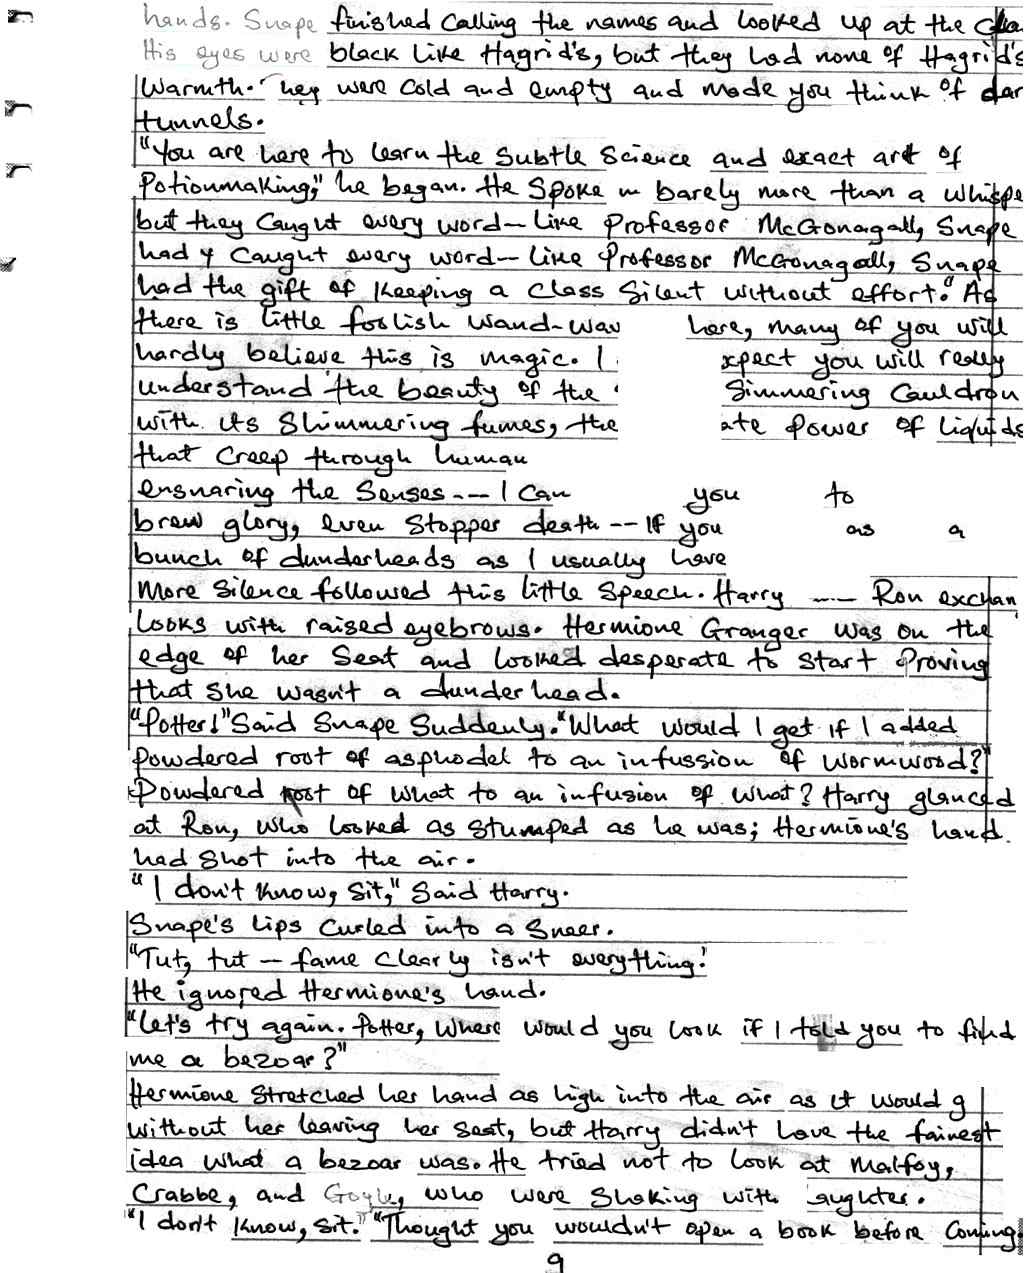 hands. Snape finished calling the names and looked up at the
His eyes were black like Hagrid's, but they had none of Hagrid's
Warmth. hey were cold and empty and made you think of dar
tunnels.
"You are here to learn the subtle science and exact art of
Potionmaking," he began. He spoke in barely more than a whispe
but they caught every word – like Professor McGonagall, Snape
had y caught every word – like Professor McGonagall, Snape
had the gift of keeping a class silent without effort." As
there is little foolish wand-wav here, many of you will
hardly believe this is magic. I xpect you will really
understand the beauty of the simmering cauldron
with its shimmering fumes, the ate power of liquids
that creep through human
ensnaring the senses --- I can you to
brew glory, even stopper death -- If you as a
bunch of dunderheads as I usually have
More silence followed this little speech. Harry --- Ron exchan
Looks with raised eyebrows. Hermione Granger was on the
edge of her seat and looked desperate to start proving
that she wasn't a dunderhead.
"Potter!" Said Snape Suddenly. "What would I get if I added
Powdered root of asphodel to an infussion of wormwood?"
Powdered root of what to an infusion of what? Harry glanced
at Ron, who looked as stumped as he was; Hermione's hand
had shot into the air.
"I don't know, sit," said Harry.
Snape's lips curled into a sneer.
"Tut, tut – fame clearly isn't everything!
He ignored Hermione's hand.
"Let's try again. Potter, where would you look if I told you to find
me a bezoar?"
Hermione stretched her hand as high into the air as it would g
without her leaving her seat, but Harry didn't have the fainest
idea what a bezoar was. He tried not to look at Malfoy,
Crabbe, and Goyle, who were shaking with aughter.
"I don't know, sit." "Thought you wouldn't open a book before coming.
9